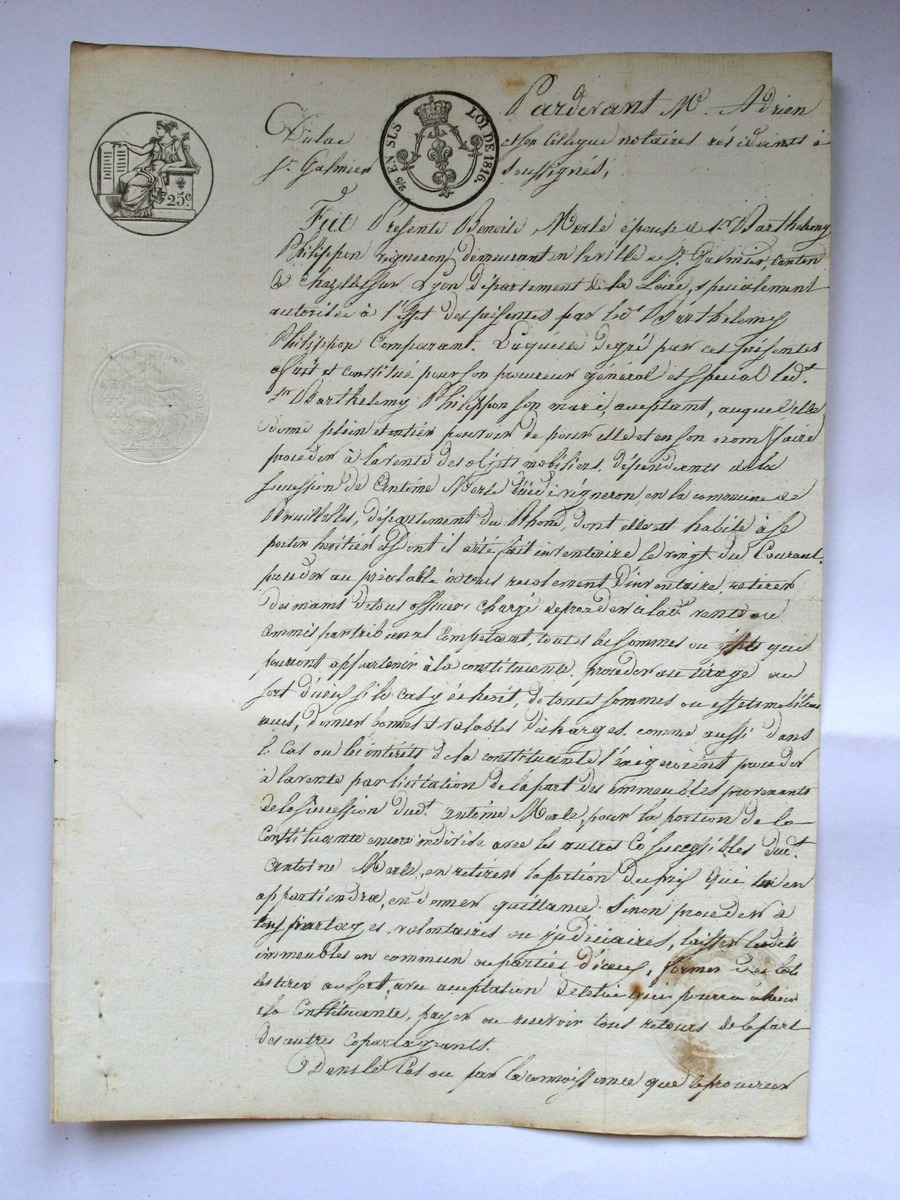 Pardevant Me. Adrien
Vialac et son Collegue notaires résidents à
St. Galmier soussignés,
2/10 EN SUS LOI DE 1816.
25c
Fut Présente Benoite Merle épouse de sr. Barthelemy
Philippon vigneron, demeurant en la ville de St. Galmier, Canton
de Chazelles sur Lyon département de la Loire, spécialement
autorisée à l'effet des présentes par led. Barthelemy
Philippon Comparant. Laquelle de gré par ces présentes
a fait et constitué pour son procureur général et spécial led.
sr. Barthelemy Philippon son mari, acceptant, auquel elle
donne plein et entier pouvoir de pour elle et en son nom faire
proceder à la vente des objets mobiliers, dépendants de la
succession de Antoine Merle vigneron, en la commune de
Brullioles, département du Rhone, dont elle est habile à se
porter heritier et dont il a été fait inventaire le vingt du Courant.
proceder au préalable à tous recolement d'inventaire, retirer
des mains de tous officiers chargé de proceder à lad. vente ou
commis par tribunal competant, toutes les sommes ou qui
pourront appartenir à la constituante. proceder au tirage au
sort d'iceux si le cas y écheoit, de toutes sommes ou effets mobiliers
reçus, donner bonnes et valables décharges. comme aussi dans
le Cas ou les intérêts de la constituante l'exigeroient proceder
à la vente par licitation de la part des immeubles provenants
de la Succession dud. Antoine Merle, pour la portion de la
Constituante encore indivise avec les autres Cosuccessibles dud.
Antoine Merle, en retirer la portion du prix qui lui en
appartiendra, en donner quittance. Sinon proceder à
tous partages volontaires ou judiciaires, laisser lesdits
immeubles en commun ou parties d'iceux, former les lots
les tirer au sort, avec acceptation de celui qui pourra échoir
à la Constituante, payer ou recevoir tous retours de la part
des autres Copartageants.
Dans le Cas ou par la connoissance que le procureur